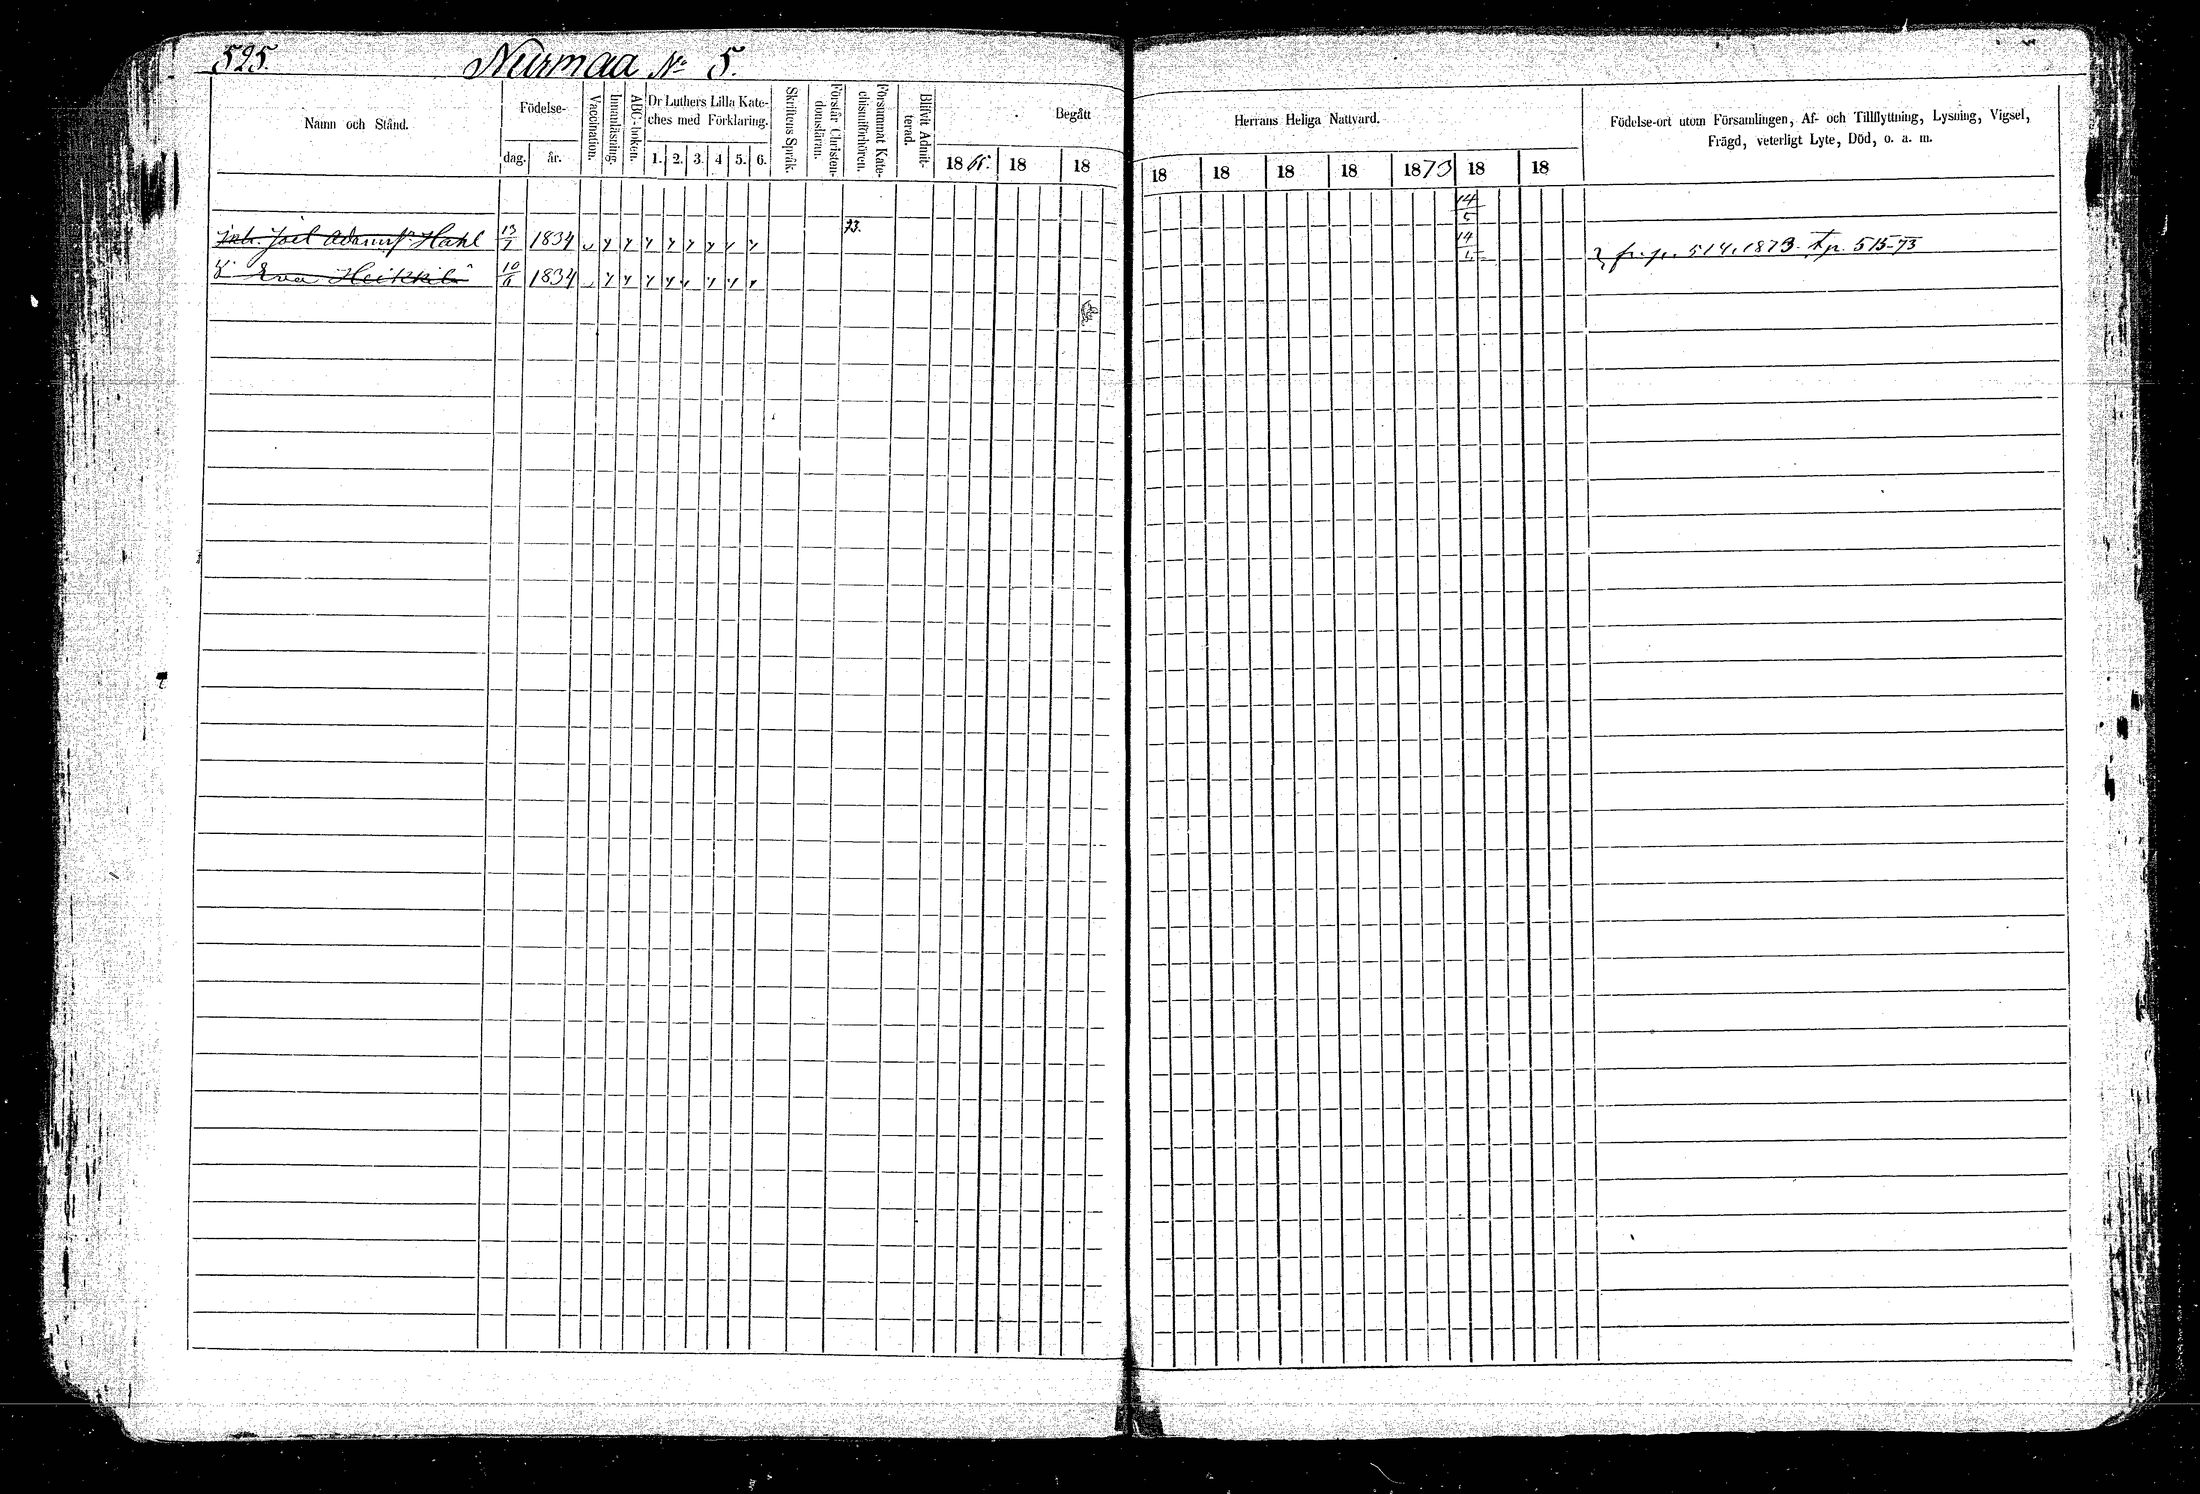 525.
Nurmaa No 5.
Namn och Stånd.
Födelse-
dag.
år.
Vaccination.
Innanläsning.
ABC-boken.
Dr Luthers Lilla Kate-
ches med Förklaring.
1. 2. 3. 4 5. 6.
Skriftens Språk.
Förstår Christen-
domsläran.
Försummat Kate-
chismiförhören.
Blifvit Admit-
terad.
Begått
18 18 18
Herrans Heliga Nattvard.
18 18 18 18 1873 18 18
Födelse-ort utom Församlingen, Af- och Tillflyttning, Lysning, Vigsel,
Frägd, veterligt Lyte, Död, o. a. m.
14
5
Joel Hahl 13 1834 73. 14 fr. p. 514. 1873. p. 515-73
Eva Heikkilä 10 1834